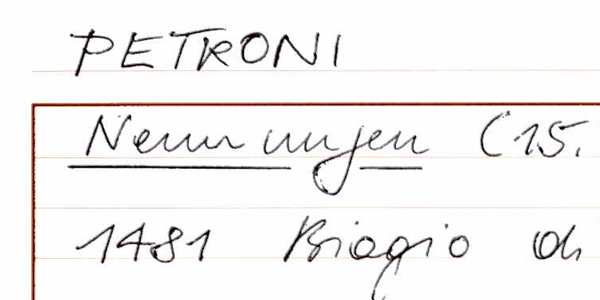 PETRONI
Nennungen (15.
1481 Biagio di